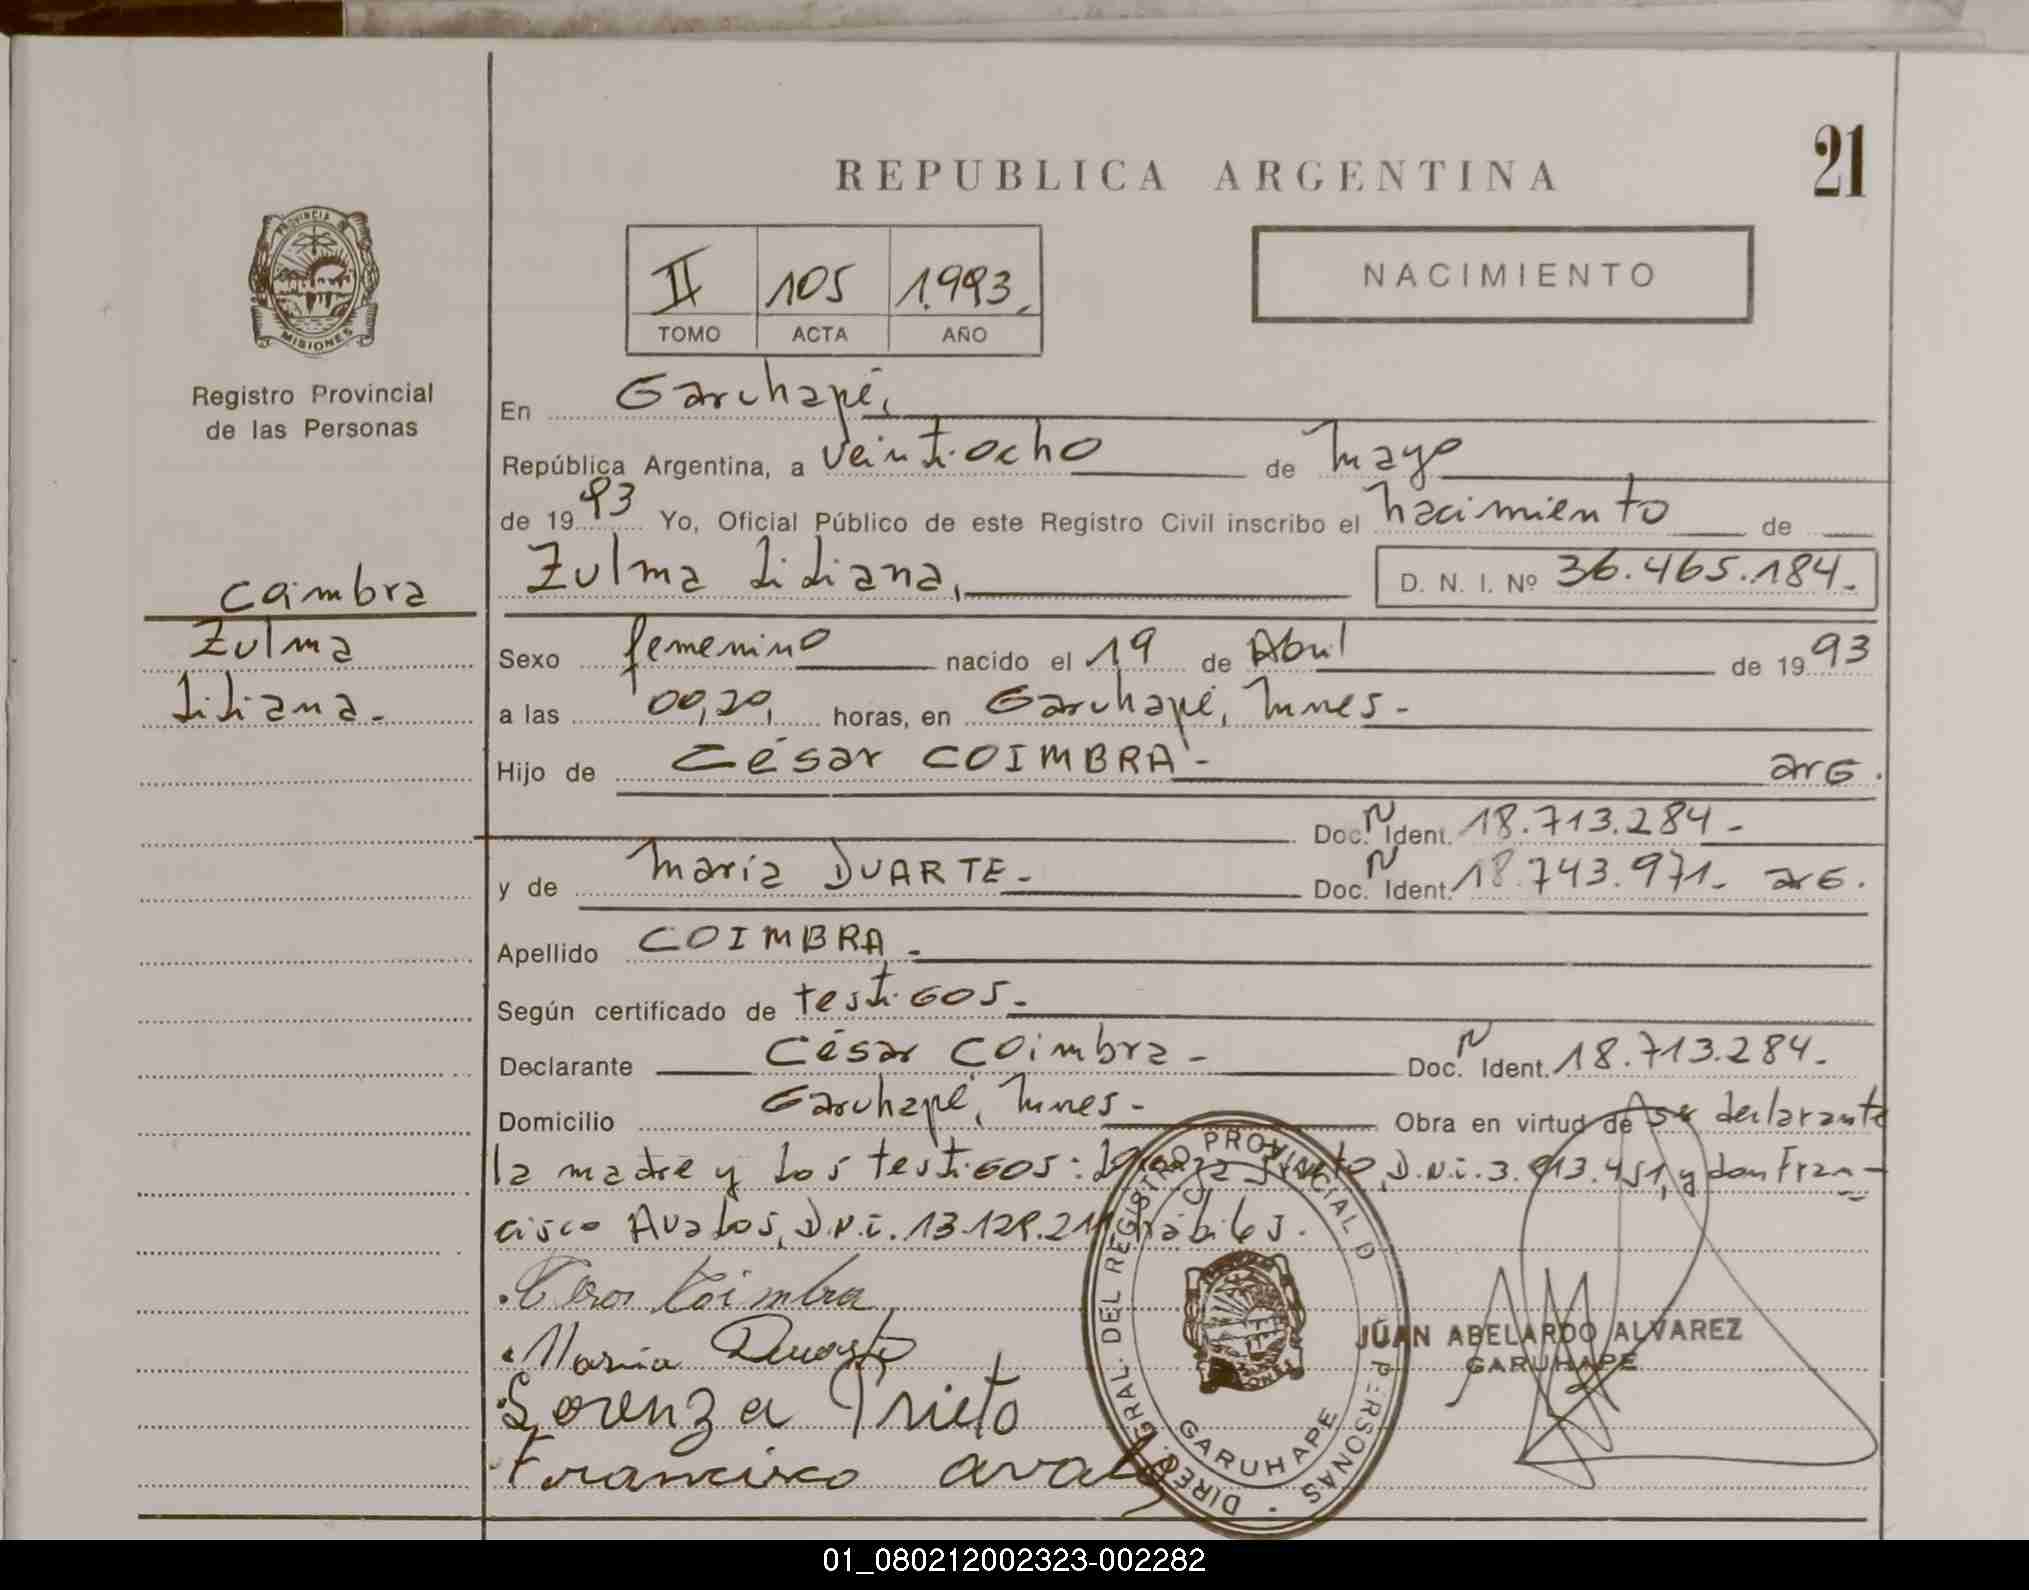 REPUBLICA ARGENTINA
21
PROVINCIA DE
MISIONES
Registro Provincial
de las Personas
II 105 1.993.
TOMO ACTA AÑO
NACIMIENTO
En Garuhapé,
República Argentina, a veintiocho de Mayo
de 1993 Yo, Oficial Público de este Registro Civil inscribo el nacimiento de
Zulma Liliana, D. N. I. Nº 36.465.184.-
Coimbra
Zulma
Liliana.-
Sexo femenino nacido el 19 de Abril de 1993
a las 00,20, horas, en Garuhapé, Mnes.-
Hijo de César COIMBRA.- arg.
Doc. N Ident. 18.713.284.-
y de María DUARTE.- Doc. N Ident. 18.743.971.- arg.
Apellido COIMBRA.-
Según certificado de testigos.-
Declarante César Coimbra.- Doc. N Ident. 18.713.284.-
Domicilio Garuhapé, Mnes.- Obra en virtud de ser declarante
la madre y los testigos: Lorenza Prieto, D.N.i. 3.913.451, y don Fran-
cisco Avalos, D.N.i. 13.129.211 hábiles.
Coimbra
Maria Duarte
Lorenza Prieto
Francisco avalos
DIREC. GRAL. DEL REGISTRO PROVINCIAL D PERSONAS
GARUHAPE
JUAN ABELARDO ALVAREZ
GARUHAPE
01_080212002323-002282